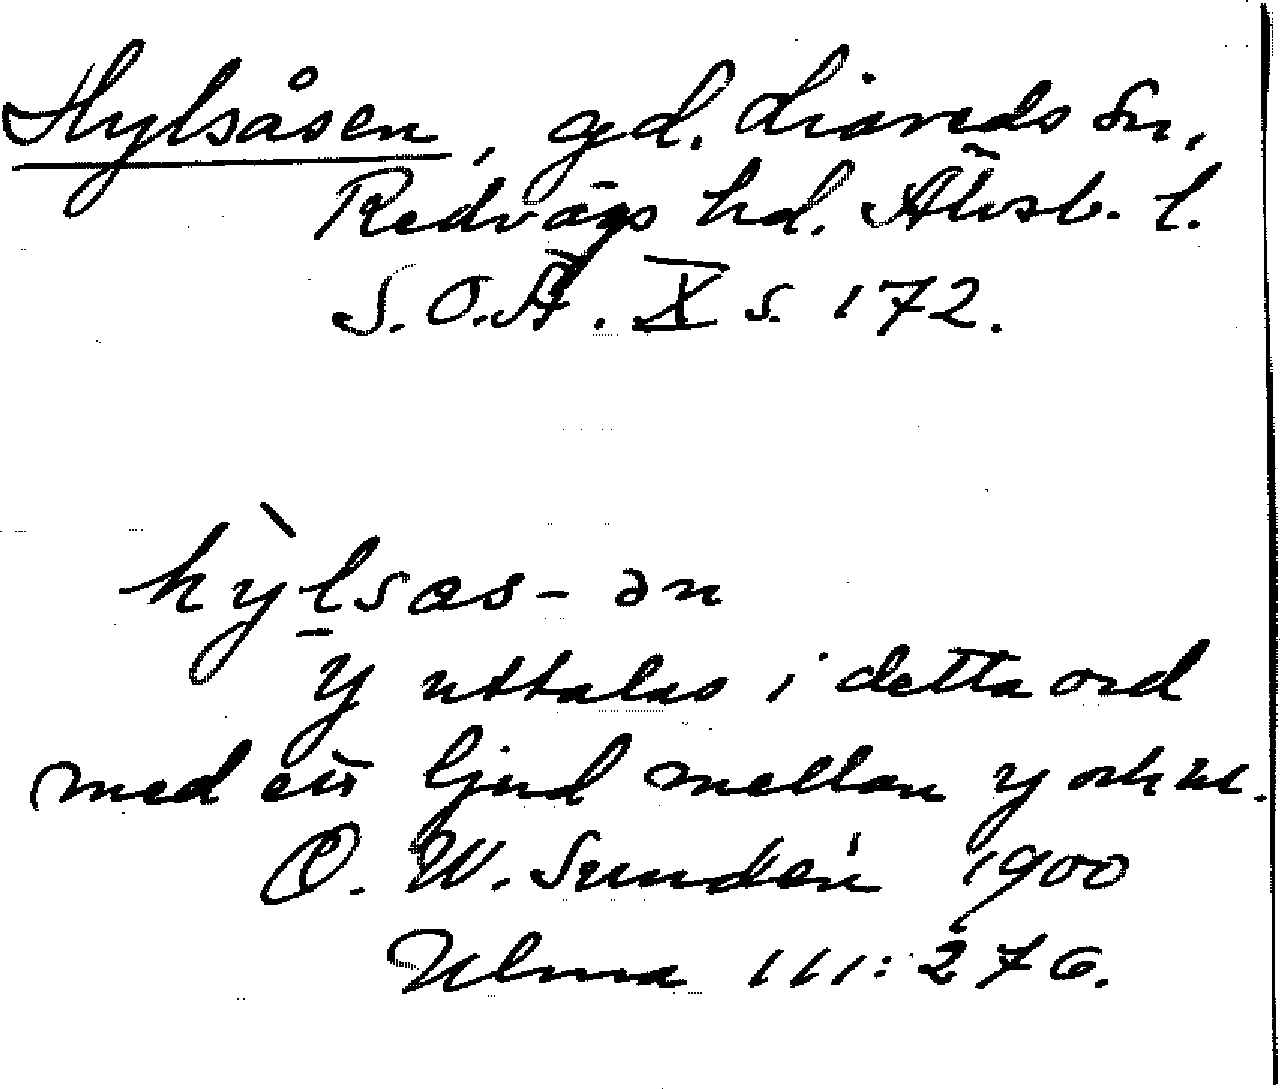 Hylsåsen, gd. Liareds sn,
Redvägs hd. Älvsb. l.
S.O.Ä. X s. 172.
hy̍lsas-ən
y uttalas i detta ord
med ett ljud mellan y och u.
O. W. Sundén 1900
Ulma 111:276.